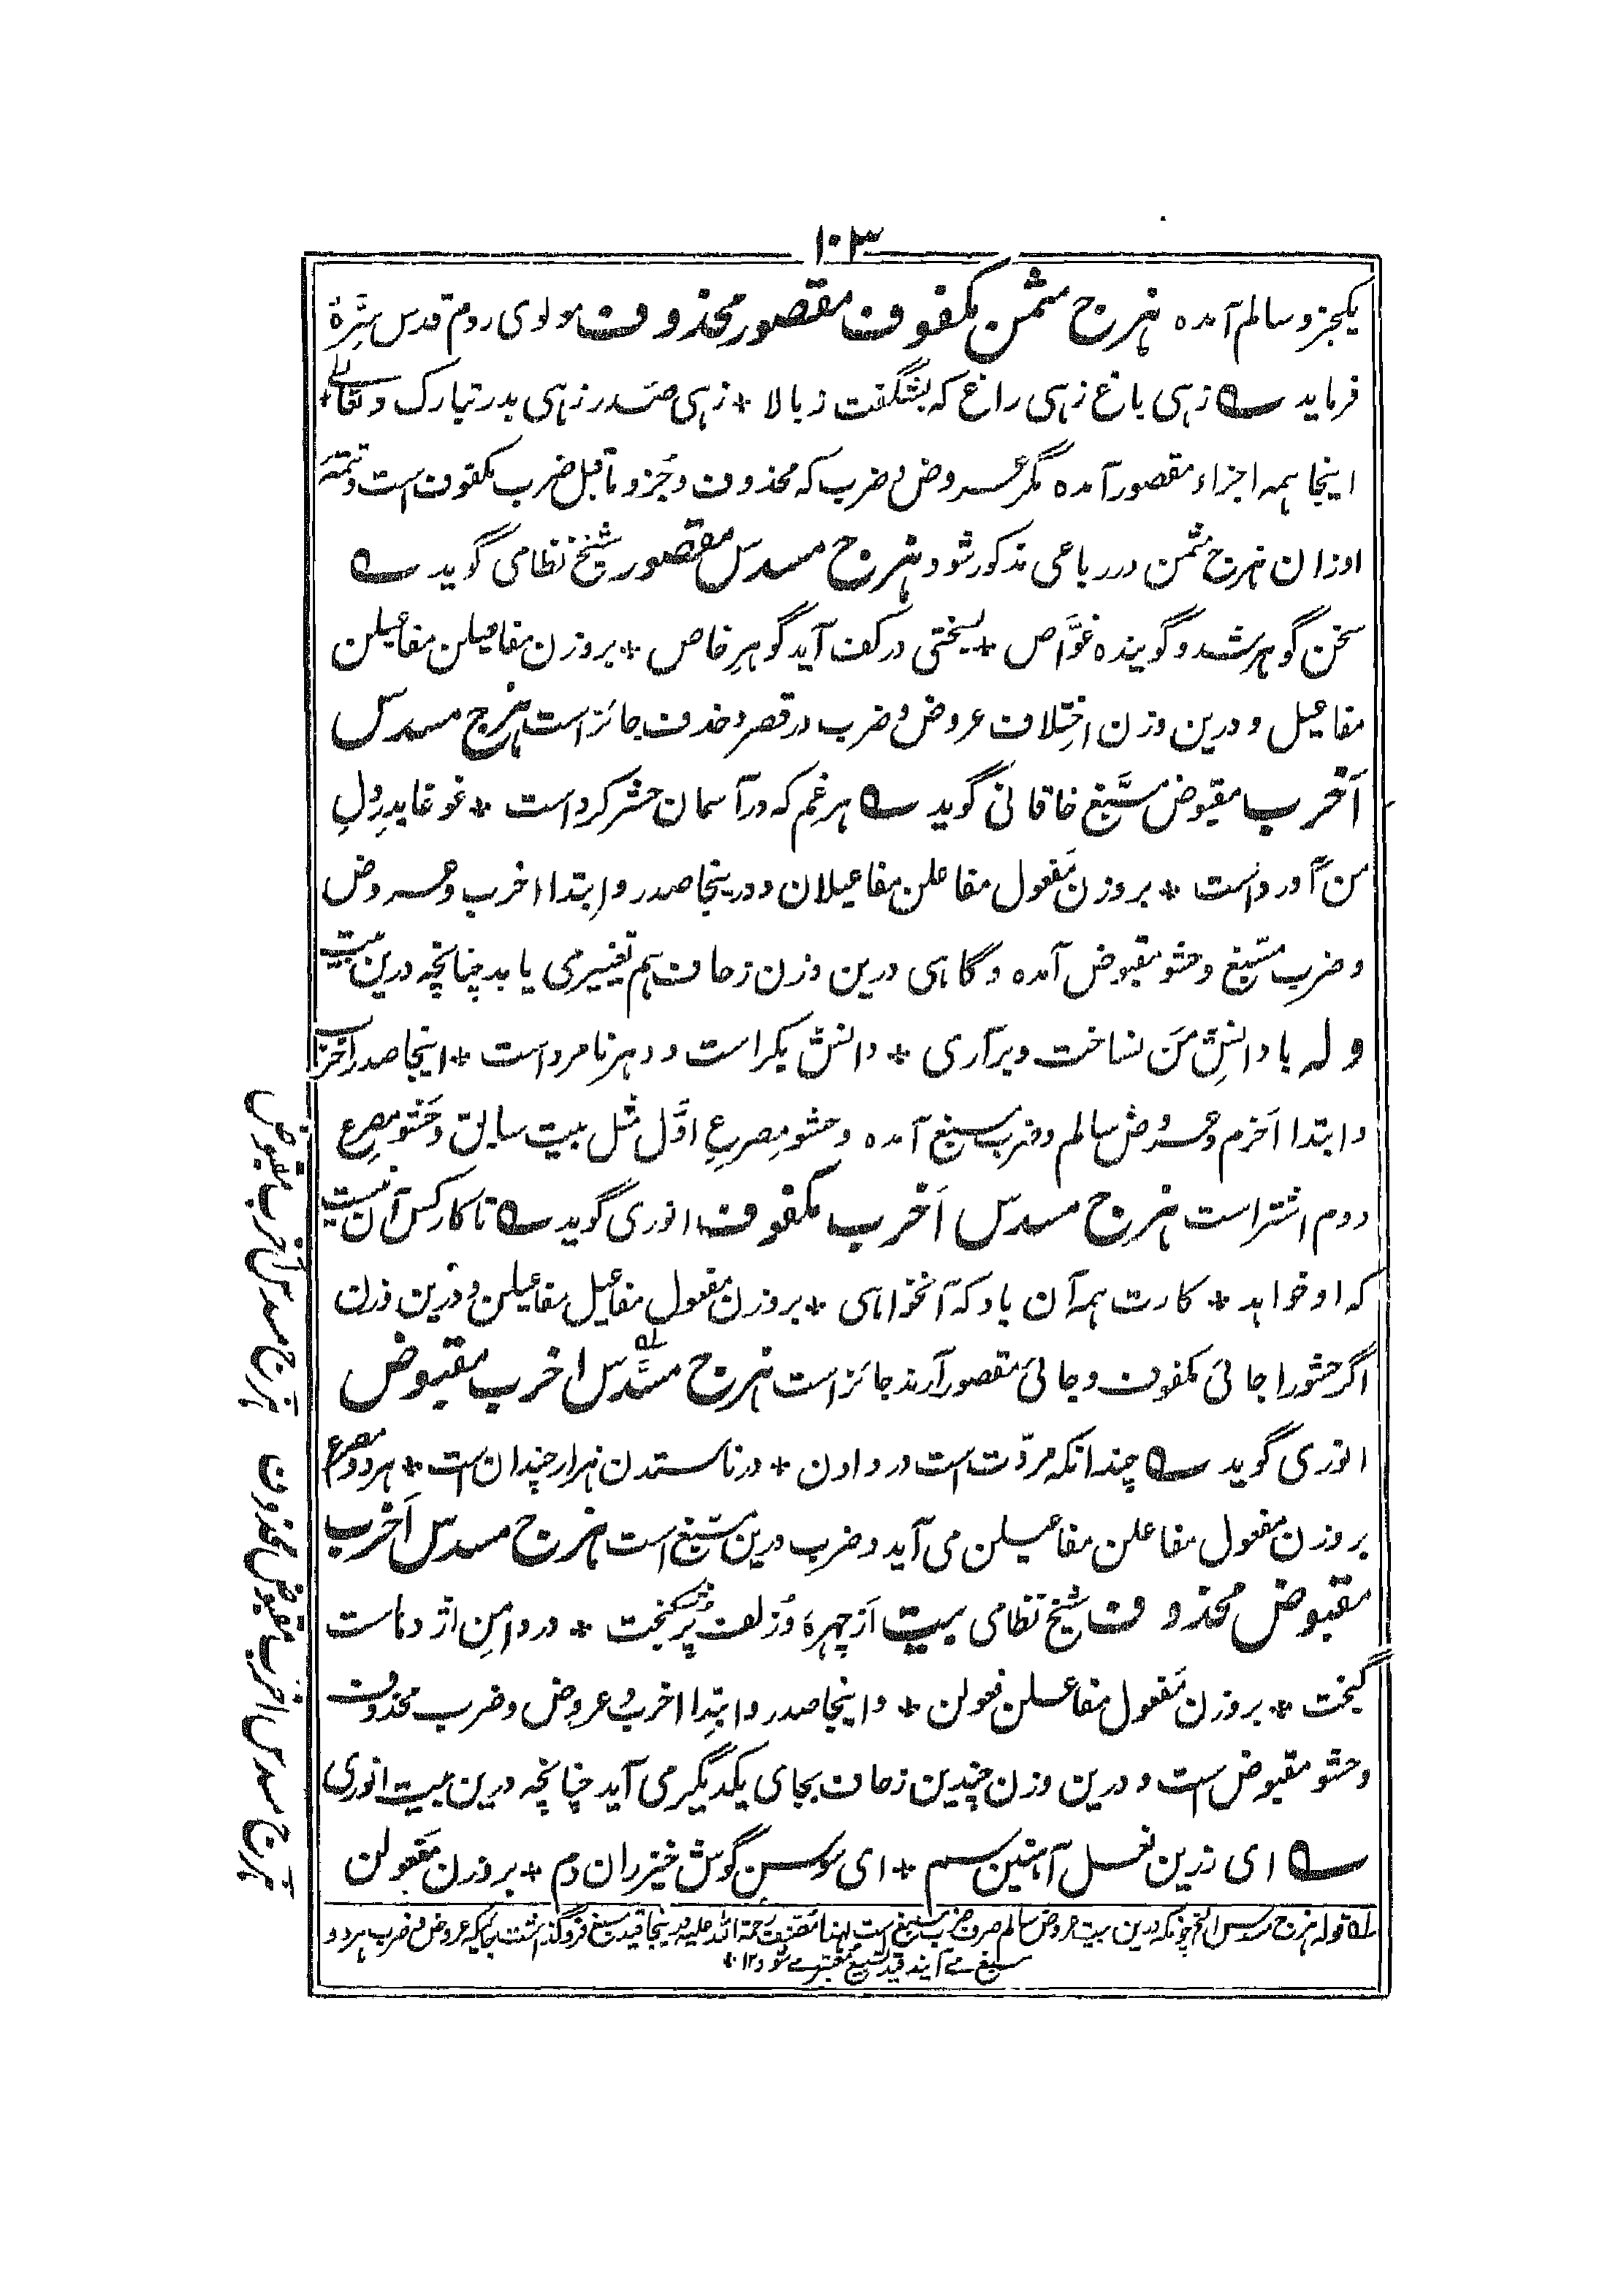 ۱۰۳
یکجزو سالم آمده هزج مثمن مکفوف مقصور محذوف مولوی روم قدس سِرَّہٗ
فرماید ؎ زہی باغ زہی راغ که بشگفت ز بالا * زہی صَدر زہی بدر تبارک وتعالیٰ *
اینجا ہمه اجزاء مقصور آمده مگر عروض و ضرب که محذوف و جُزو ماقبل ضرب مکفوف است وتتمّهٔ
اوزان ہزج مثمن در رباعی مذکور شود ہزج مسدس مقصور شیخ نظامی گوید ؎
سخن گوہر شد و گوینده غوَّاص * بسختی در کف آید گوہرِ خاص * بروزن مفاعیلن مفاعیلن
مفاعیل و درین وزن اختِلاف عروض و ضرب در قصر و حذف جائز است ہزج مسدس
اَخرب مقبوض مسَبَّغ خاقانی گوید ؎ ہر غم که در آسمان حشر کرد است * غوغا بدرِ دلِ
من آورد است * بروزن مَفعول مفاعلن مفاعیلان و درینجا صدر و ابتدا اخرب و عروض
و ضرب مسبّغ و حشو مقبوض آمده و گاہی درین وزن زحاف ہم تغییر می یابد چنانچه درین بیت
وله با دانشِ من نساخت و برآری * دانش بکر است و دہر نامرد است * اینجا صدر اَخرب
و ابتدا اَخرم و عروض سالم و ضرب مسبغ آمده و حشو مصرعِ اوَّل مثل بیت سابق و حَشو مصرع
دوم اشتر است ہزج مسدس اَخرب مکفوف انوری گوید ؎ تا کار کس آن نیست
که او خواہد * کارت ہمه آن باد که آنخواہی * بروزن مفعول مفاعیل مفاعیلن و درین وزن
اگر حشو را جائی مکفوف و جائی مقصور آرند جائز است ہزج مسدَّس اخرب مقبوض
انوری گوید ؎ چندانکه مروّت است در دادن * در ناستدن ہزار چندان است * ہر دو مصرع
بروزن مفعول مفاعلن مفاعیلن می آید و ضرب درین مسبّغ است ہزج مسدس اَخرب
مقبوض محذوف شیخ نظامی بیت اَز چہرهٔ وُ زلف پُر می‌بیخت * در دامنِ اژدہا ست
گیخت * بروزن مَفعول مفاعلن فعولن * و اینجا صدر و ابتِدا اخرب و عروض و ضرب محذوف
و حشو مقبوض است و درین وزن چندین زحاف بجای یکدیگر می آید چنانچه درین بیت انوری
؎ ای زرین نعل آہنین سم * ای سوسن گوش خیزران دم * بروزن مَفعولن
لہ قوله ہزج مسدس الخ چونکه درین بیت عروض سالم صرف ضرب مسبغ است لہذا مُصَنف رحمة اللّٰه علیه درینجا قید مسبغ فروگذاشت بجائیکه عروض و ضرب ہر دو
مسبغ می آیند قید تسبیغ معتبر می شود ۱۲ *
ہزج مسدس اَخرب مقبوض
ہزج مسدس اخرب مقبوض محذوف